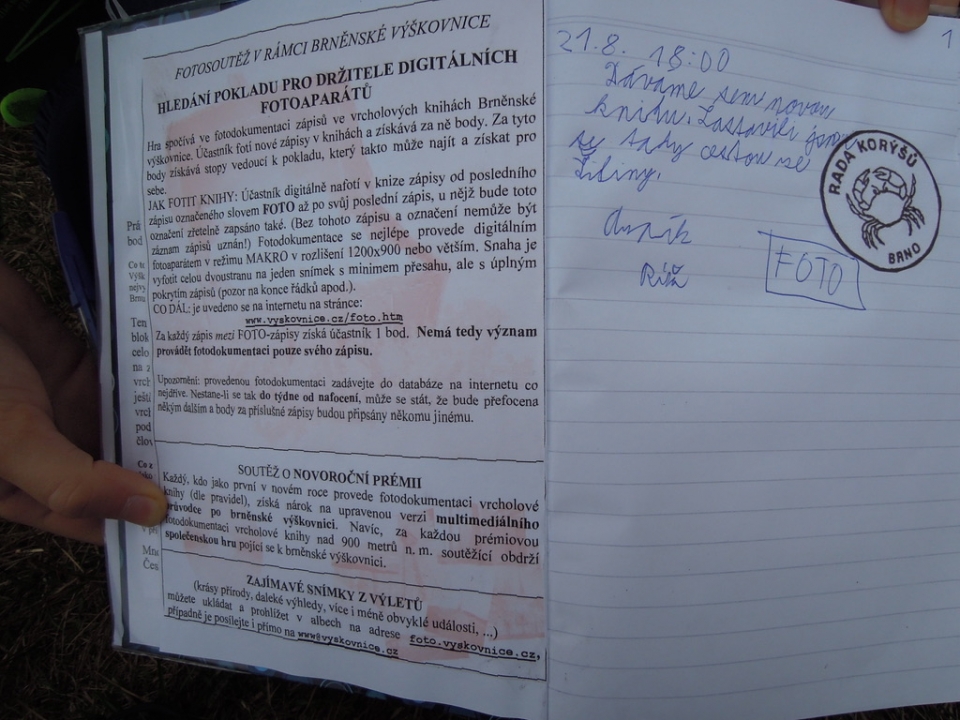 FOTOSOUTĚŽ V RÁMCI BRNĚNSKÉ VÝŠKOVNICE
HLEDÁNÍ POKLADU PRO DRŽITELE DIGITÁLNÍCH
FOTOAPARÁTŮ
Hra spočívá ve fotodokumentaci zápisů ve vrcholových knihách Brněnské
výškovnice. Účastník fotí nové zápisy v knihách a získává za ně body. Za tyto
body získává stopy vedoucí k pokladu, který takto může najít a získat pro
sebe.
JAK FOTIT KNIHY: Účastník digitálně nafotí v knize zápisy od posledního
zápisu označeného slovem FOTO až po svůj poslední zápis, u nějž bude toto
označení zřetelně zapsáno také. (Bez tohoto zápisu a označení nemůže být
záznam zápisů uznán!) Fotodokumentace se nejlépe provede digitálním
fotoaparátem v režimu MAKRO v rozlišení 1200x900 nebo větším. Snaha je
vyfotit celou dvoustranu na jeden snímek s minimem přesahu, ale s úplným
pokrytím zápisů (pozor na konce řádků apod.).
CO DÁL: je uvedeno se na internetu na stránce:
www.vyskovnice.cz/foto.htm
Za každý zápis mezi FOTO-zápisy získá účastník 1 bod. Nemá tedy význam
provádět fotodokumentaci pouze svého zápisu.
Upozornění: provedenou fotodokumentaci zadávejte do databáze na internetu co
nejdříve. Nestane-li se tak do týdne od nafocení, může se stát, že bude přefocena
někým dalším a body za příslušné zápisy budou připsány někomu jinému.
SOUTĚŽ O NOVOROČNÍ PRÉMII
Každý, kdo jako první v novém roce provede fotodokumentaci vrcholové
knihy (dle pravidel), získá nárok na upravenou verzi multimediálního
průvodce po brněnské výškovnici. Navíc, za každou prémiovou
fotodokumentaci vrcholové knihy nad 900 metrů n. m. soutěžící obdrží
společenskou hru pojící se k brněnské výškovnici.
ZAJÍMAVÉ SNÍMKY Z VÝLETŮ
(krásy přírody, daleké výhledy, více i méně obvyklé události, ...)
můžete ukládat a prohlížet v albech na adrese foto.vyskovnice.cz,
případně je posílejte i přímo na www@vyskovnice.cz
1
21.8. 18:00
Dáváme sem novou
knihu. Zastavili jsme
se tady cestou ze
Žiliny.
RADA KORÝŠŮ
BRNO
FOTO